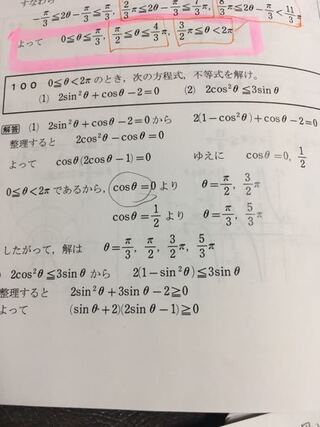 すなわち
-π/3≦2θ-π/3≦π/3, 2/3π≦2θ-π/3≦7/3π, 8/3π≦2θ-π/3<11/3π
よって 0≦θ≦π/3, π/2≦θ≦4/3π, 3/2π≦θ<2π
100 0≦θ<2π のとき,次の方程式,不等式を解け。
(1) 2sin²θ+cosθ-2=0 (2) 2cos²θ≦3sinθ
解答 (1) 2sin²θ+cosθ-2=0 から 2(1-cos²θ)+cosθ-2=0
整理すると 2cos²θ-cosθ=0
よって cosθ(2cosθ-1)=0 ゆえに cosθ=0, 1/2
0≦θ<2π であるから, cosθ=0 より θ=π/2, 3/2π
cosθ=1/2 より θ=π/3, 5/3π
したがって,解は θ=π/3, π/2, 3/2π, 5/3π
) 2cos²θ≦3sinθ から 2(1-sin²θ)≦3sinθ
整理すると 2sin²θ+3sinθ-2≧0
よって (sinθ+2)(2sinθ-1)≧0